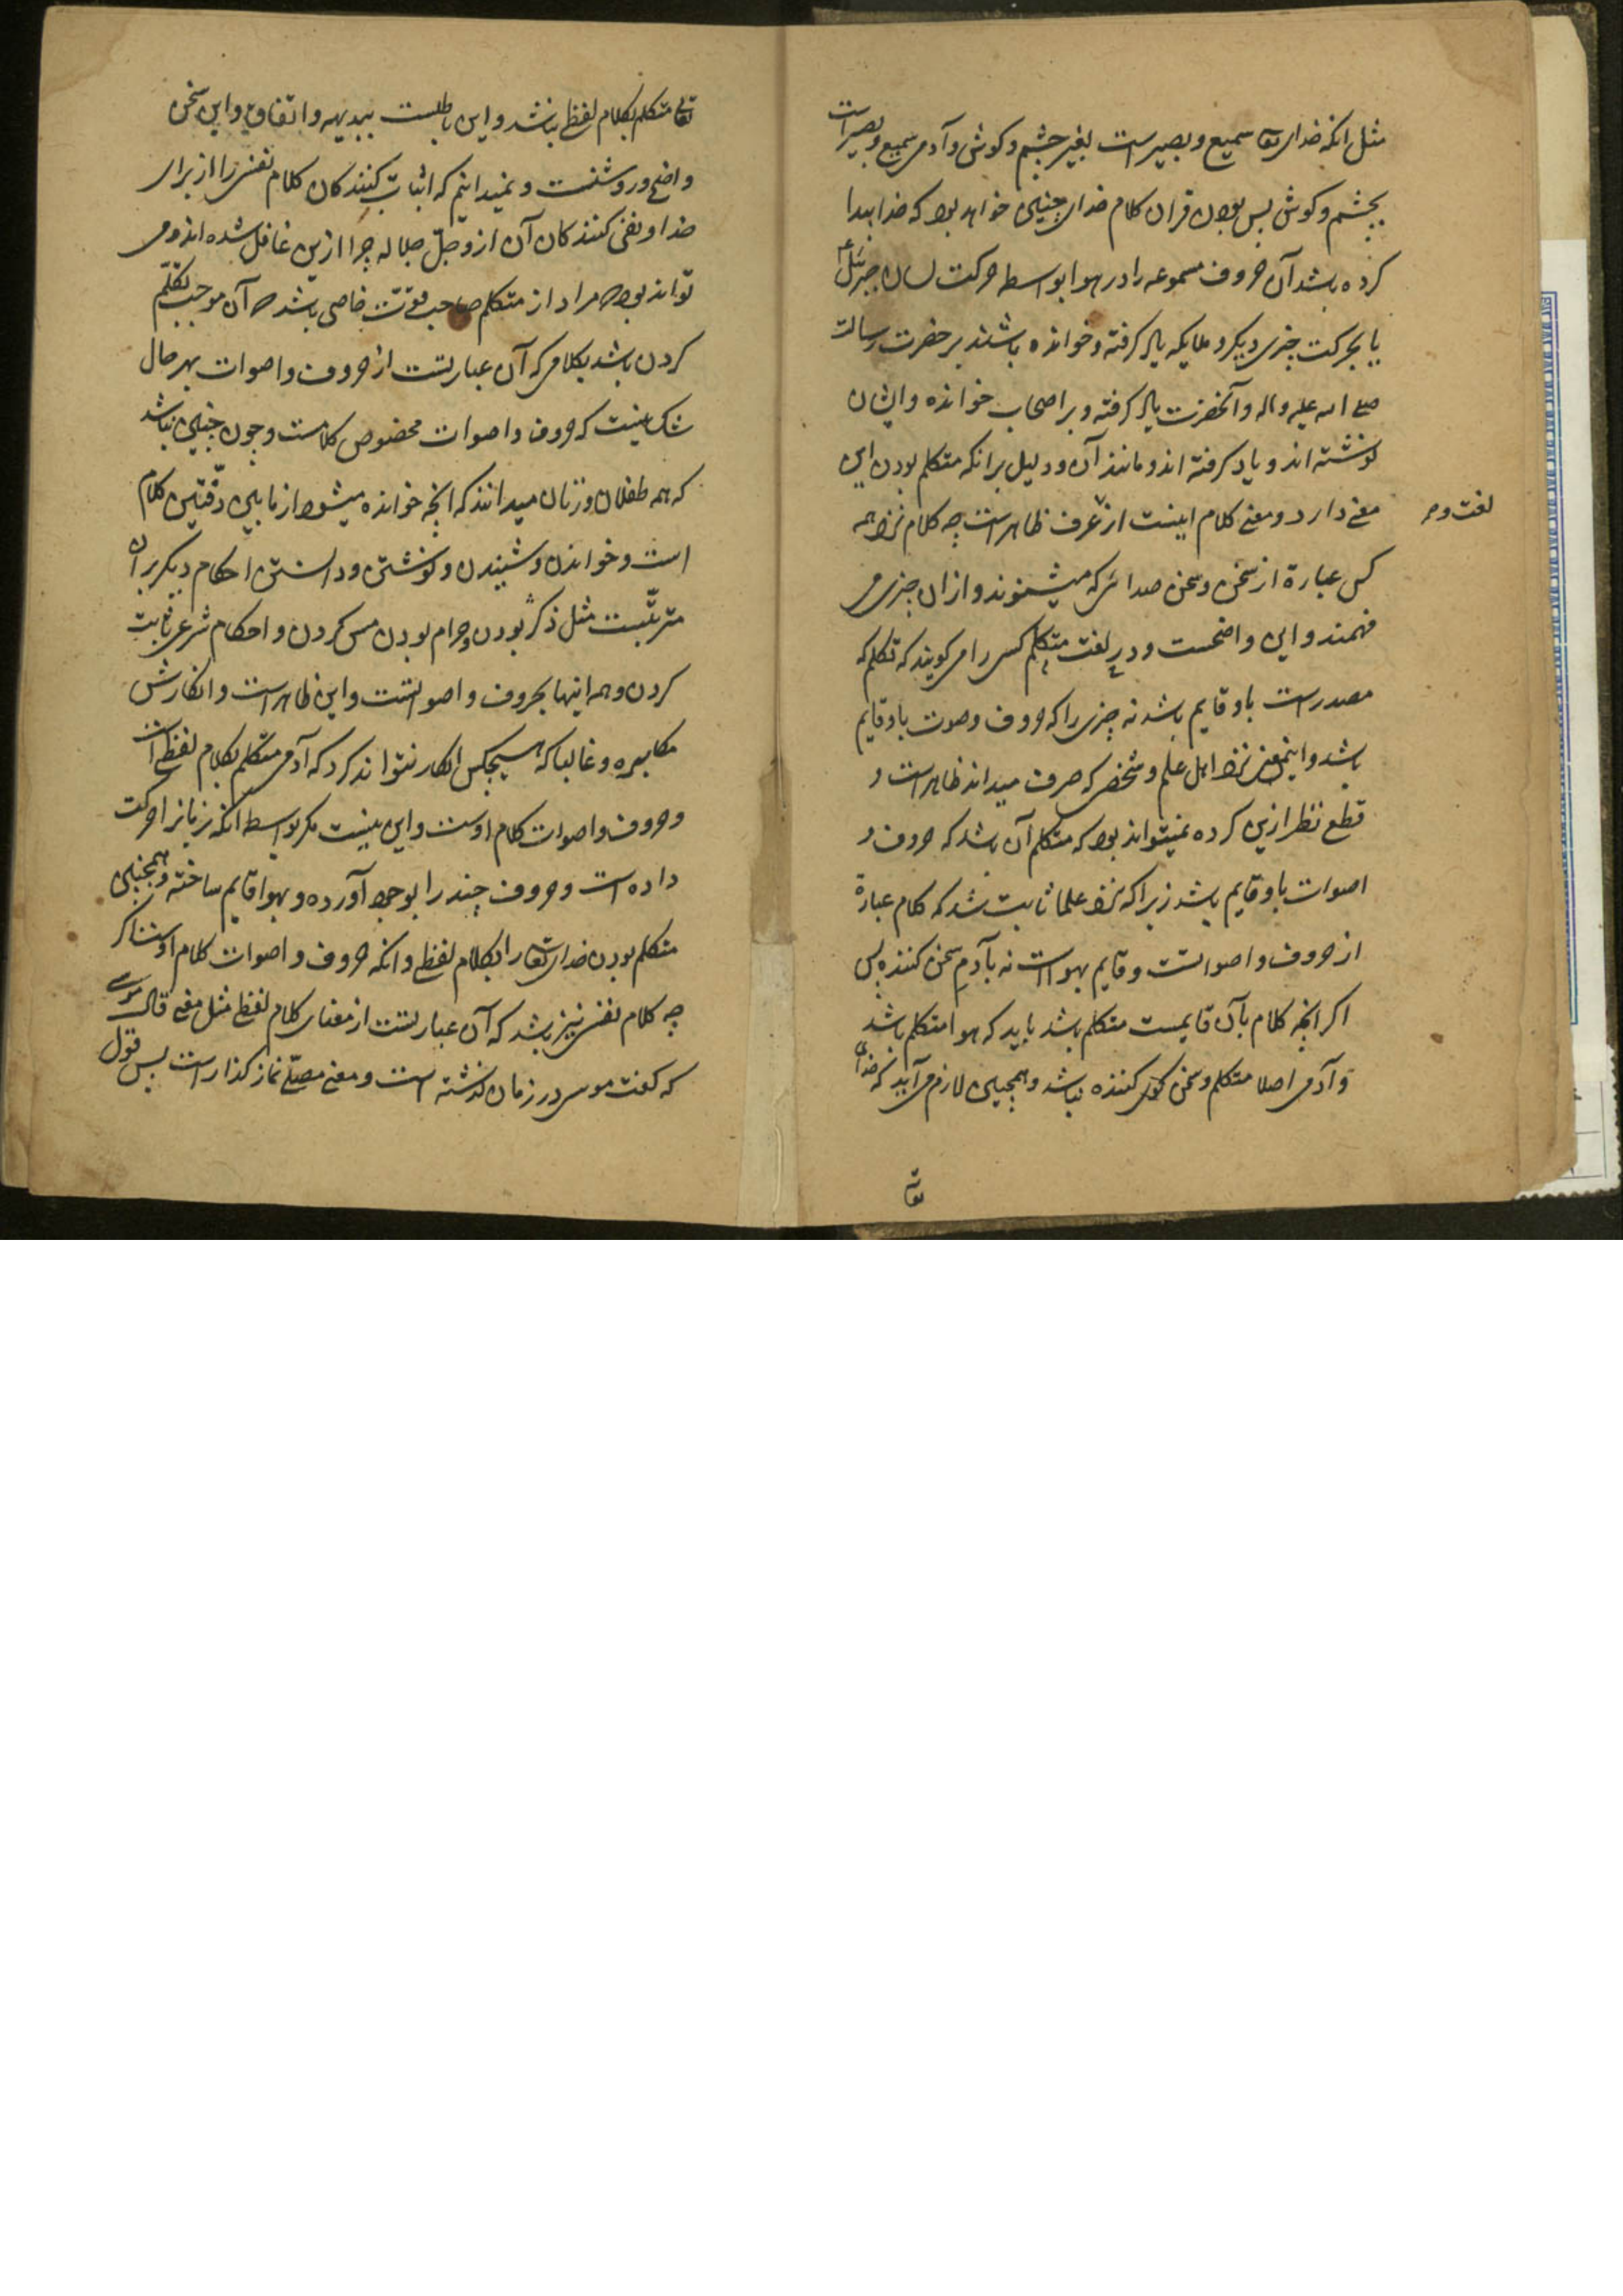 مثل انکه خدای تعا سمیع و بصیرست بغیر چشم و کوش و آدمی سمیع و بصیر است
بچشم و کوش پس بودن قران کلام خدای چنین خواهد بود که خدا پیدا
کرده باشد آن حروف مسموعه را در هوا بواسطه حرکت لسان جبرئیل ع
یا بحرکت چیزی دیکر و ملایکه یاد کرفته و خوانده باشند بر حضرت رسالت
صلی الله علیه واله و آنحضرت یاد کرفته و بر اصحاب خوانده و ایشان
نوشته اند و یاد کرفته اند و مانند آن و دلیل بر انکه متکلم بودن این
معنی دارد و معنی کلام اینست از عرف ظاهر است چه کلام نزد همه
لغت و
کس عبارة از سخن و سخن صدائی که میشنوند و ازان چیزی می
فهمند و این واضحست و در لغت متکلم کسی را می کویند که تکلم که
مصدر است باو قایم باشد نه چیزی را که حروف و صوت باو قایم
باشد و اینمعنی نزد اهل علم و شخصی که صرف میداند ظاهر است و
قطع نظر ازین کرده نمیتواند بود که متکلم آن باشد که حروف و
اصوات باو قایم باشد زیرا که نزد علما ثابت شد که کلام عبارة
از حروف و اصواتست و قایم بهواست نه بآدم سخن کننده پس
اکر انچه کلام بآن قایمست متکلم باشد باید که هوا متکلم باشد
و آدمی اصلا متکلم و سخن کننده نباشد و همچنین لازم می آید که خدای
تعا
تعالی متکلم بکلام لفظی نباشد و این باطلست ببدیهه و اتفاق و این سخن
واضح و روشنست و نمیدانیم که اثبات کنندکان کلام نفسی را از برای
خدا و نفی کنندکان آن ازو جل جلاله چرا ازین غافل شده اند و می
تواند بود که مراد از متکلم صاحب قوّت خاصی باشد که آن موجب تکلّم
کردن باشد بکلامی که آن عبارتست از حروف و اصوات بهر حال
شک نیست که حروف و اصوات مخصوص کلامست و چون چنین نباشد
که همه طفلان و زنان میدانند که انچه خوانده میشود از ما بین دفّتین کلام
است و خواندن و شنیدن و نوشتن و دانستن احکام دیکر بر آن
مترتّبست مثل ذکر بودن و حرام بودن مس کردن و احکام شرعی ثابت
کردن و همه اینها بحروف و اصواتست و این ظاهر است و انکارش
مکابره و غالبا که هیچکس انکار نتواند کرد که آدمی متکلم بکلام لفظی است
و حروف و اصوات کلام اوست و این نیست مکر بواسطه انکه زبانرا حرکت
داده است و حروف چند را بوجود آورده و بهوا قایم ساخته و همچنین
متکلم بودن خدای تعا را بکلام لفظی و انکه حروف و اصوات کلام اوست اکر
چه کلام نفسی نیز باشد که آن عبارتست از معنای کلام لفظی مثل معنی قال موسی
که کفت موسی در زمان کذشته است و معنی مصلّی نماز کذار است پس قول